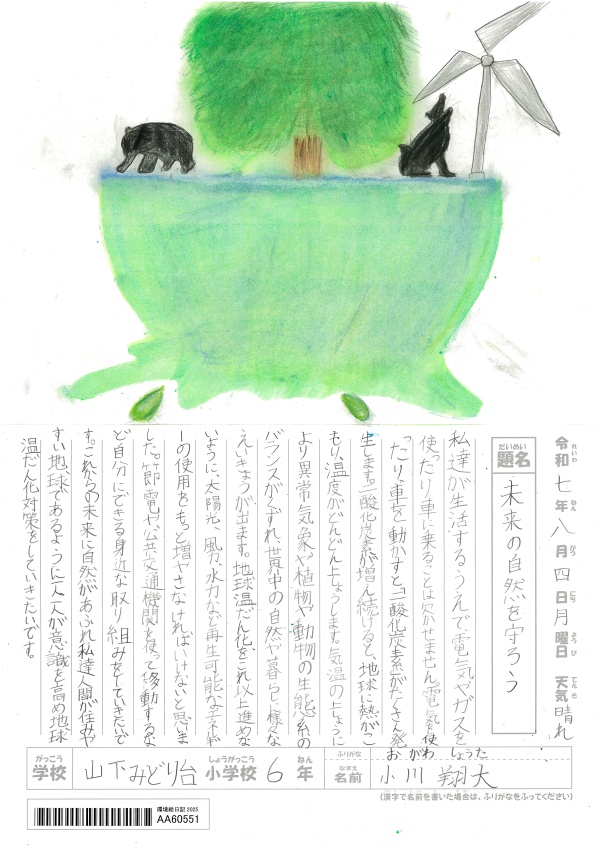 令和七年八月四日月曜日 天気晴れ
れいわ ねん がつ にち ようび てんき
だいめい
題名
未来の自然を守ろう
私達が生活するうえで電気やガスを
使ったり車に乗ることは欠かせません。電気を使
ったり、車を動かすと「二酸化炭素」がたくさん発
生します。二酸化炭素が増え続けると、地球に熱がこ
もり、温度がどんどん上しょうします。気温の上しょうに
より異常気象や植物や動物の生態系の
バランスがくずれ、世界中の自然や暮らしに様々な
えいきょうが出ます。地球温だん化をこれ以上進めな
いように、太陽光、風力、水力など再生可能なエネルギ
ーの使用をもっと増やさなければいけないと思いま
した。節電や、公共交通機関を使って移動するな
ど自分にできる身近な取り組みをしていきたいで
す。これからの未来に自然があふれ私達人間が住みや
すい地球であるように一人一人が意識を高め地球
温だん化対策をしていきたいです。
がっこう
学校
山下みどり台
しょうがっこう
小学校
6
ねん
年
ふりがな
おがわ しょうた
なまえ
名前
小川 翔大
(漢字で名前を書いた場合は、ふりがなをふってください)
環境絵日記 2025
AA60551